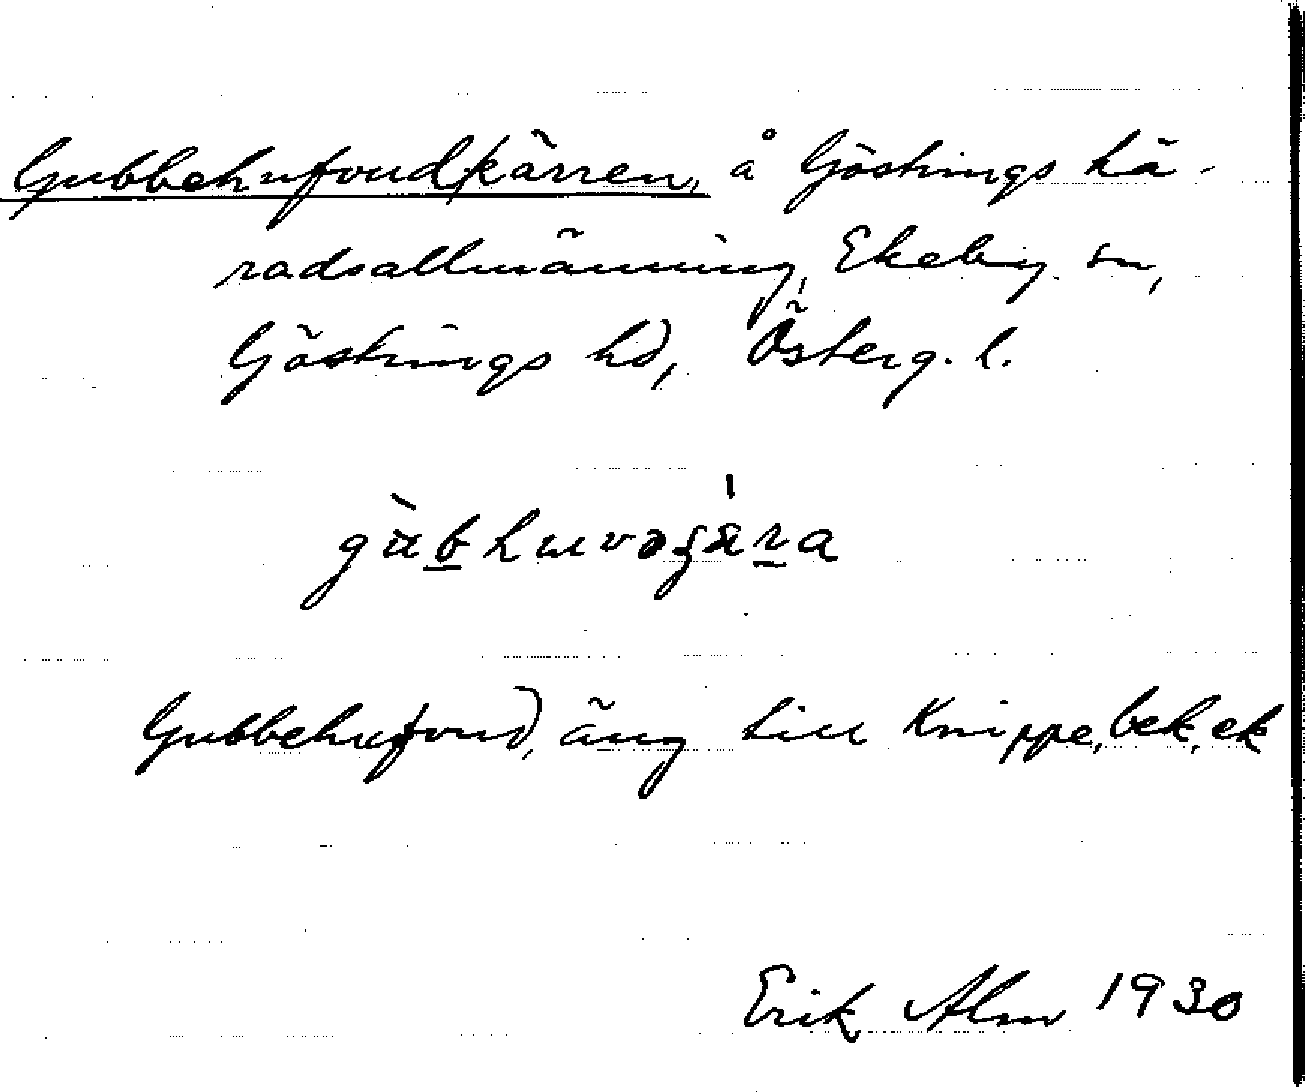 Gubbehufvudkärren, å Göstrings hä-
radsallmänning, Ekeby sn,
Göstrings hd, Österg. l.
gùb̲huvəʂä̀r̲a
Gubbehufvud, äng till Knippe, bek. ek
Erik Alm 1930